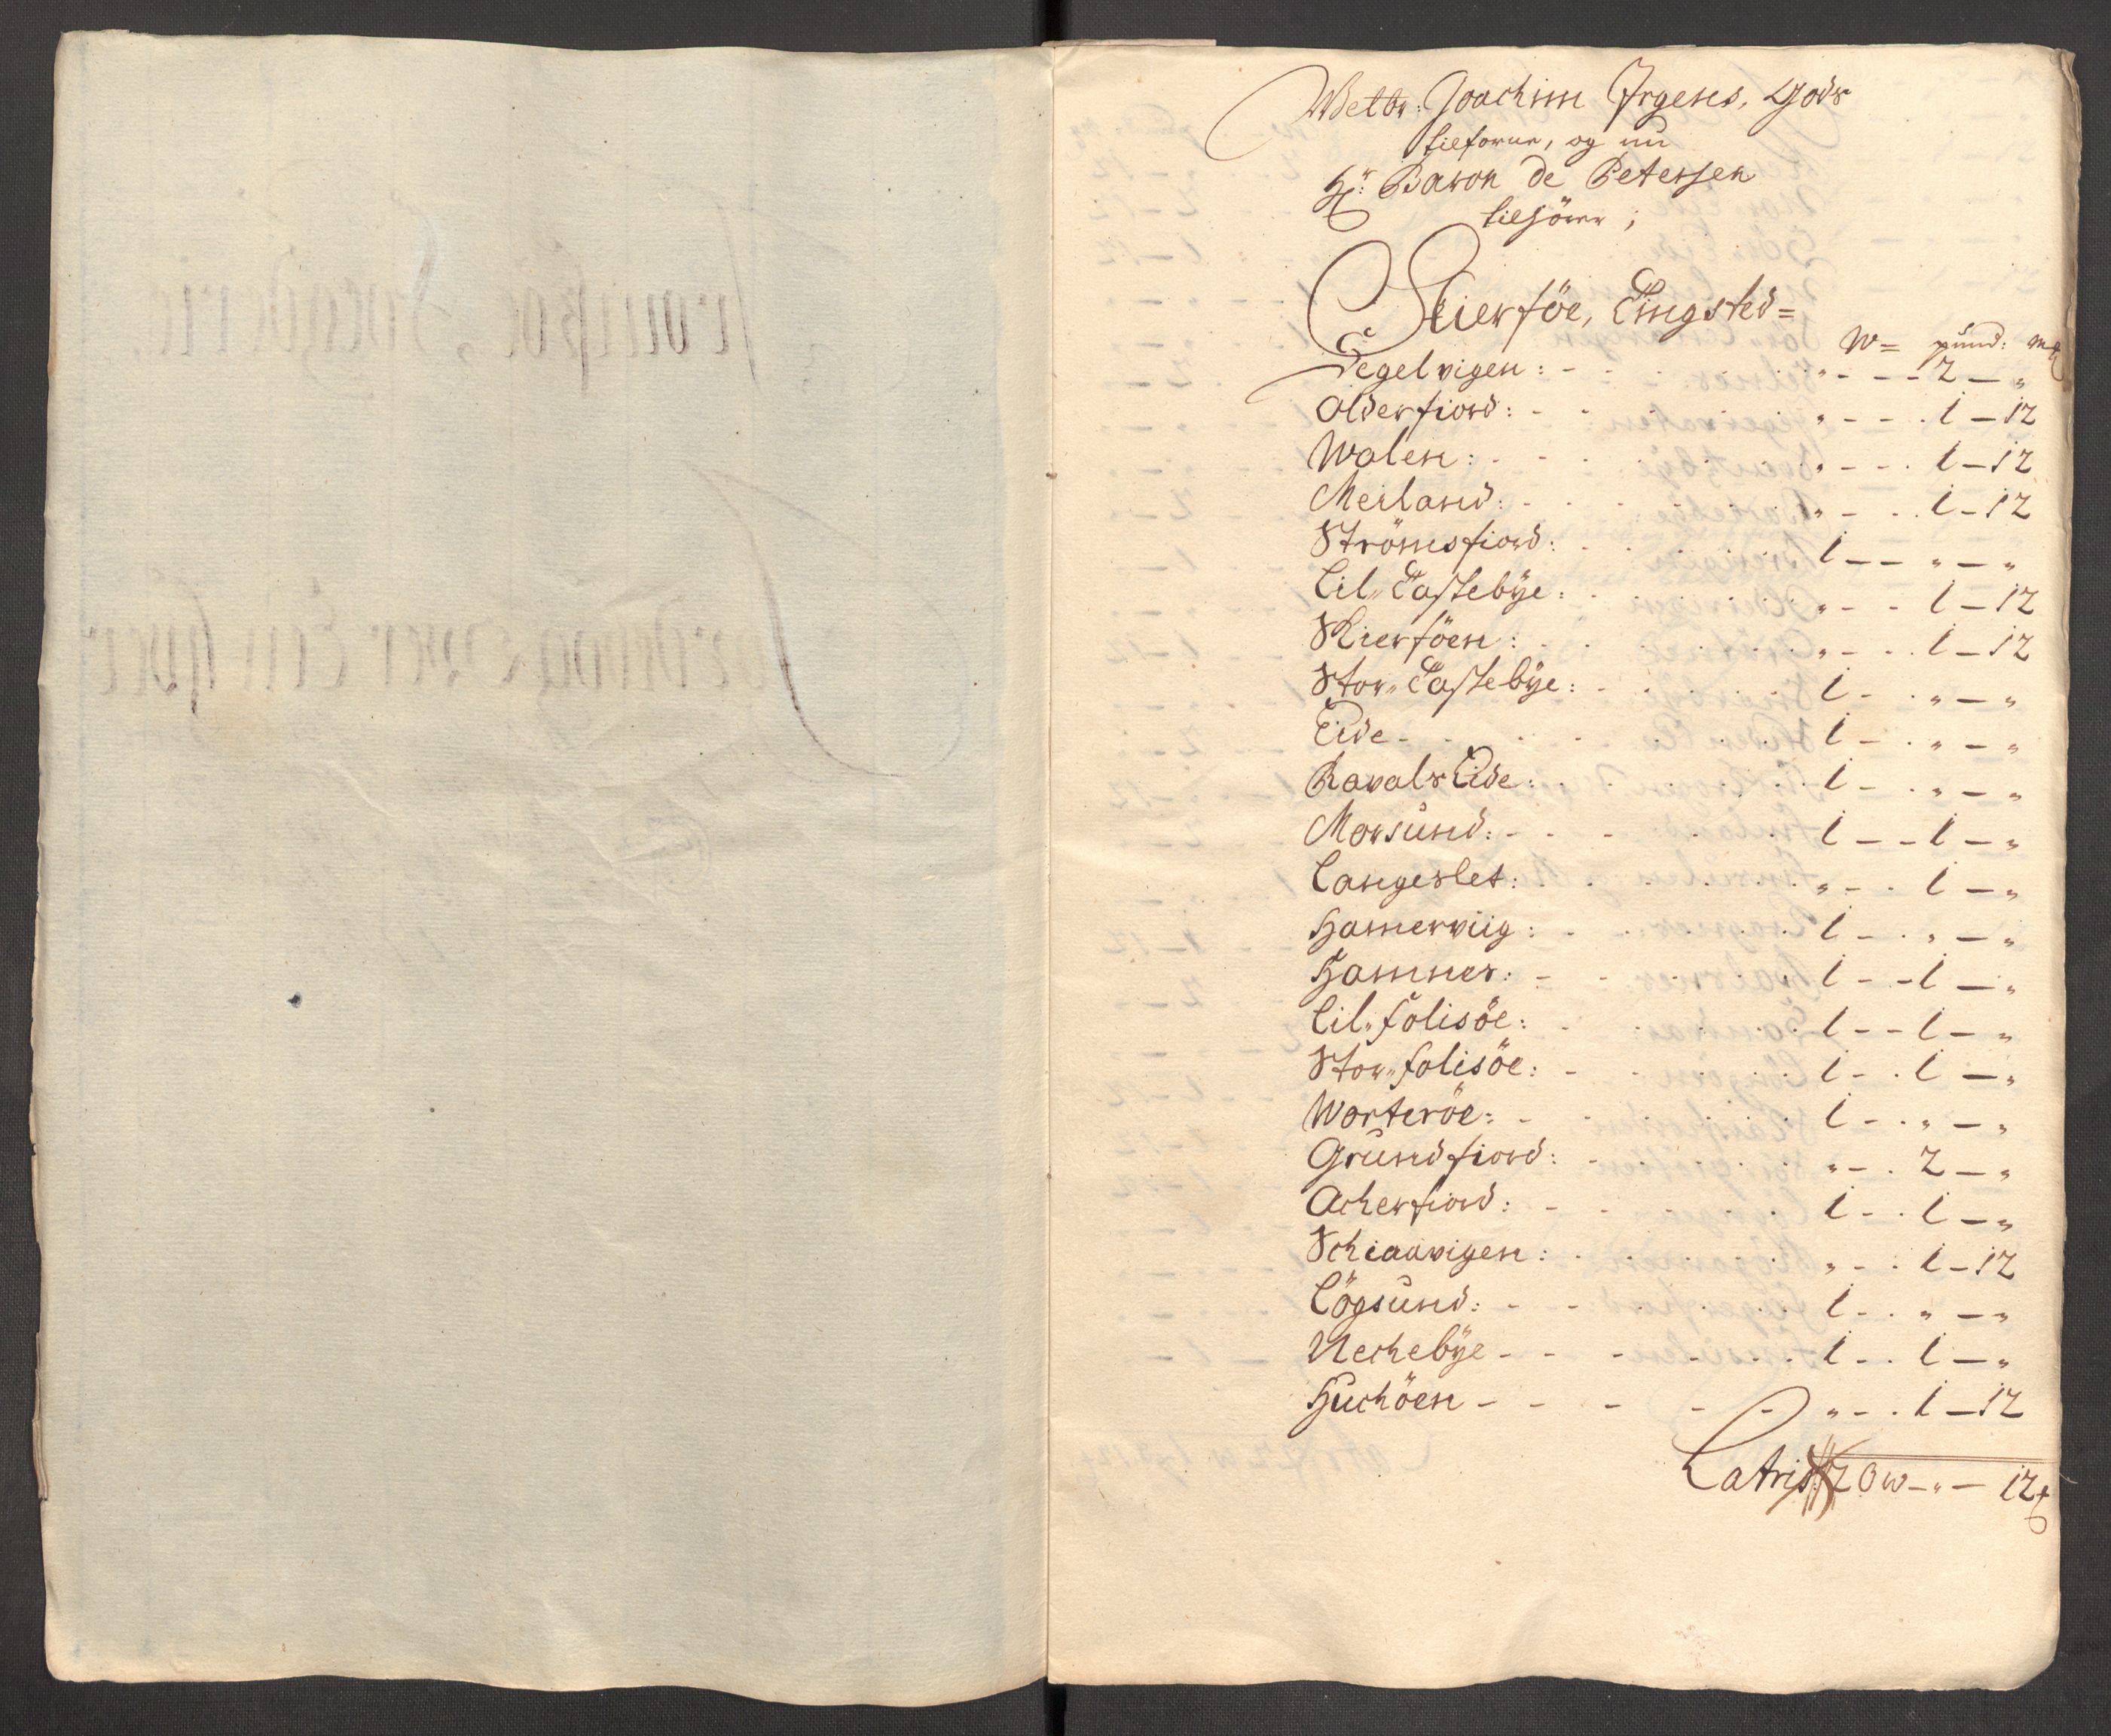 Welbr: Joachim Irgens, Gods
tilforne, og nu
Hr: Baron de Petersen
tilhörer;
Skierföe, Tingsted=
W= pund: mk
Segelvigen: - „ - - - 2 - „
Olderfiord: - „ - - - 1 - 12
Walen: - „ - - - 1 - 12
Meiland: - „ - - 1 - 12
Strömsfiord: 1 - - „ - „
Lil„ Tastebÿe: „ - - 1 - 12
Skierföen: „ - - 1 - 12
Stor„ Tastebÿe: 1 - „ - „
Eide - 1 - „ - „
Ravals Eide: 1 - „ - „
Morsund: - 1 - - 1 - „
Langeslet: „ - - 1 - „
Hamerviig: 1 - „ - „
Hamnes: - 1 - - 1 - „
Lil„ Folisöe: 1 - - 1 - „
Stor„ folisöe: - 1 - - 1 - „
Worteröe: - 1 - „ - „
Grundfiord: „ - - 2 - „
Acherfiord: - 1 - - 1 - „
Schiaavigen: „ - - 1 - 12
Lögsund: - 1 - „ - „
Uechebÿe - - 1 - - 1 - „
Huchöen - - „ - - 1 - 12
Latris 20 W - „ - 12